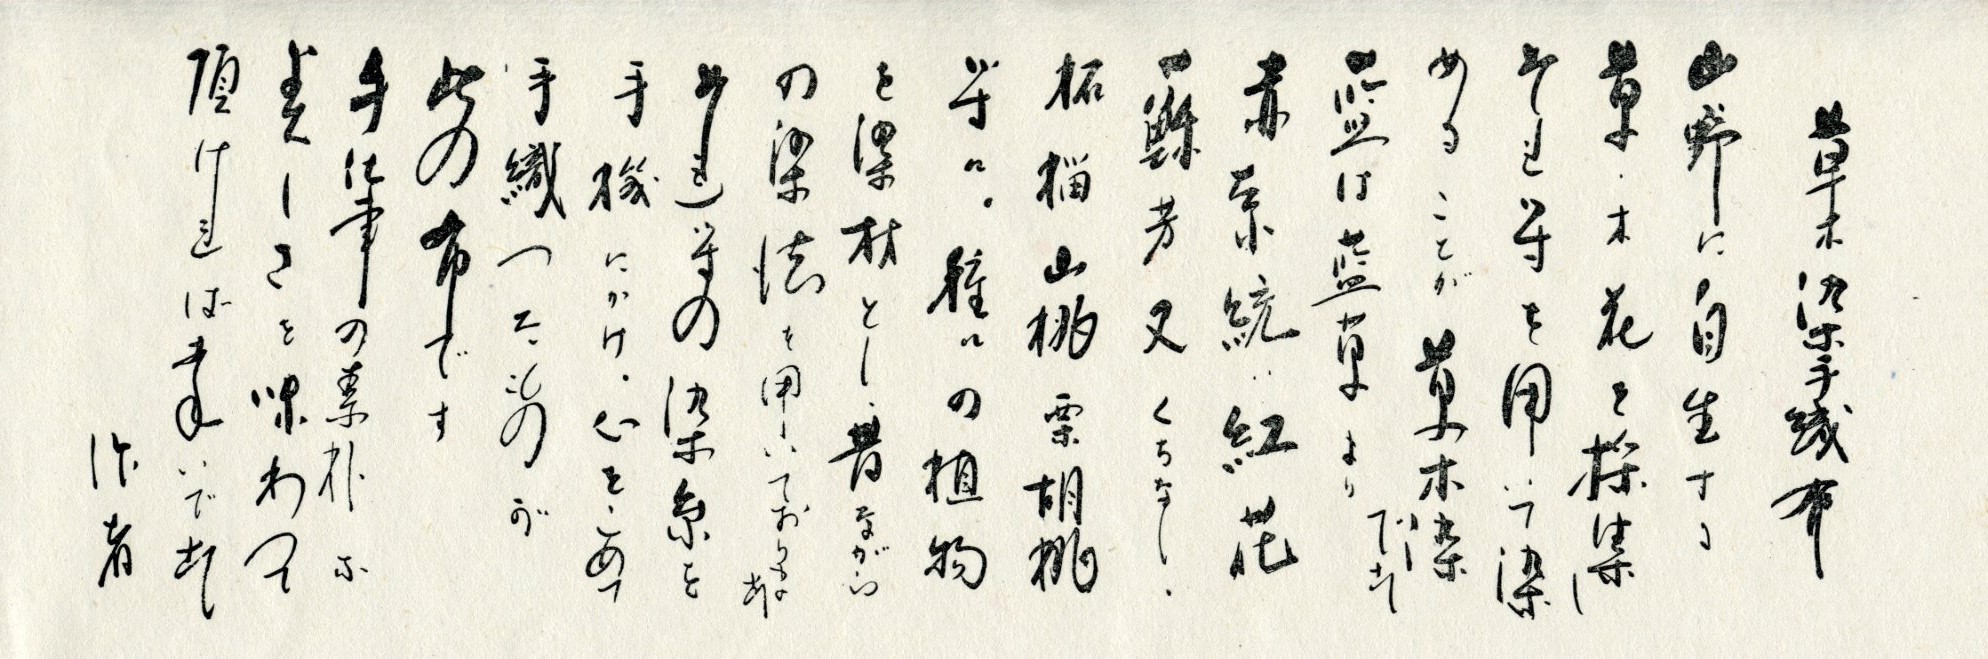 草木染手織布
山野に自生する
草・木・花を採集し
それ等を用いて染
めることが草木染
です
藍は藍草より
赤系統は紅花
蘇芳又くちなし、
柘榴山桃栗胡桃
等々。種々の植物
を染材とし、昔ながら
の染法を用いております
それ等の染糸を
手機にかけ、心をこめて
手織つたものが
此の布です
手仕事の素朴な
美しさを味わつて
頂ければ幸いです
作者